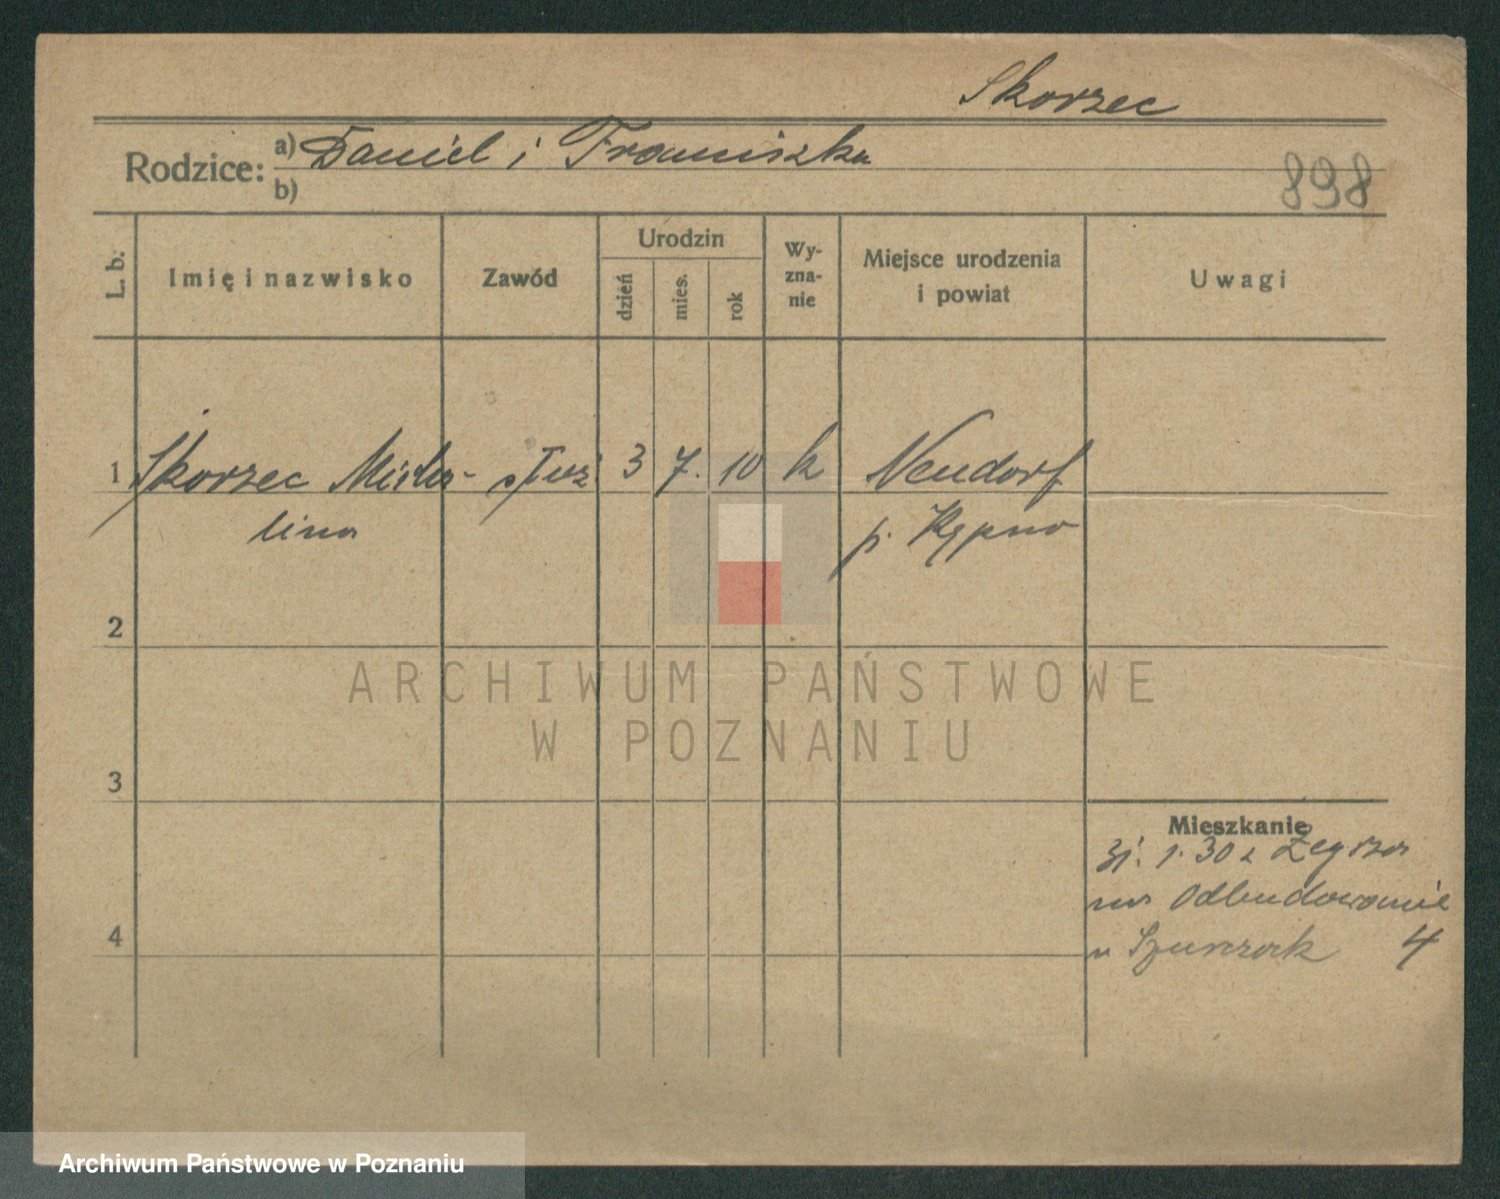 Skorzec
Rodzice: a) Daniel i Franciszka
b)
898
L. b. Imię i nazwisko Zawód Urodzin dzień mies. rok Wy-zna-nie Miejsce urodzenia i powiat Uwagi
1 Skorzec Micha- służ 3 7. 10 k Neudorf
lina p. Kępno
2
3
4
Mieszkanie
1. 30 z Żegrza
na Odbudowanie
u 4
ARCHIWUM PAŃSTWOWE
W POZNANIU
Archiwum Państwowe w Poznaniu